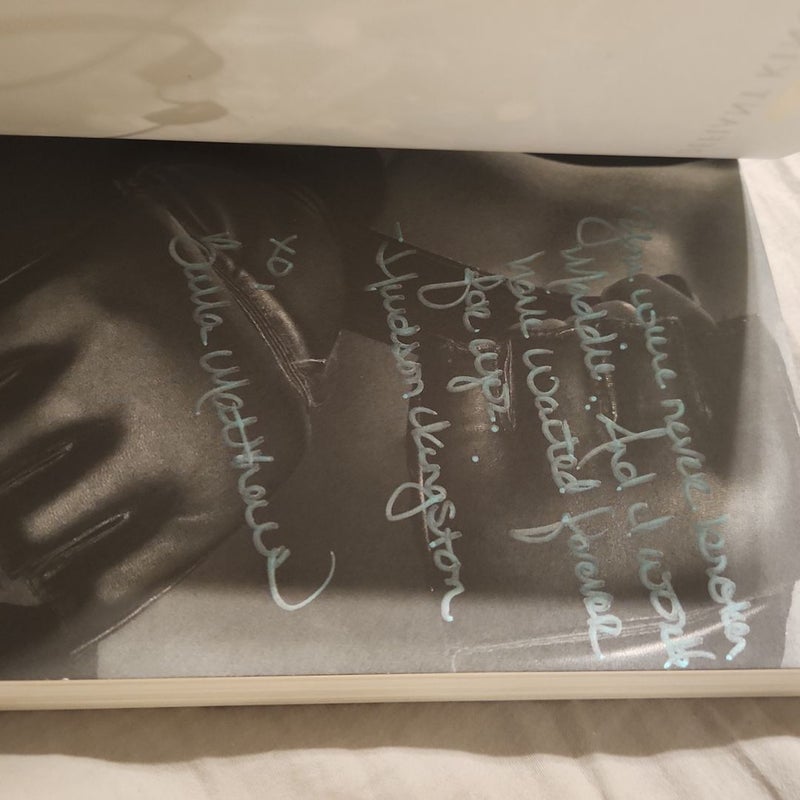 You were never broken,
Maddie.. And I would
have waited forever
for you..
- Hudson Kingston
xo,
Bella Matthews